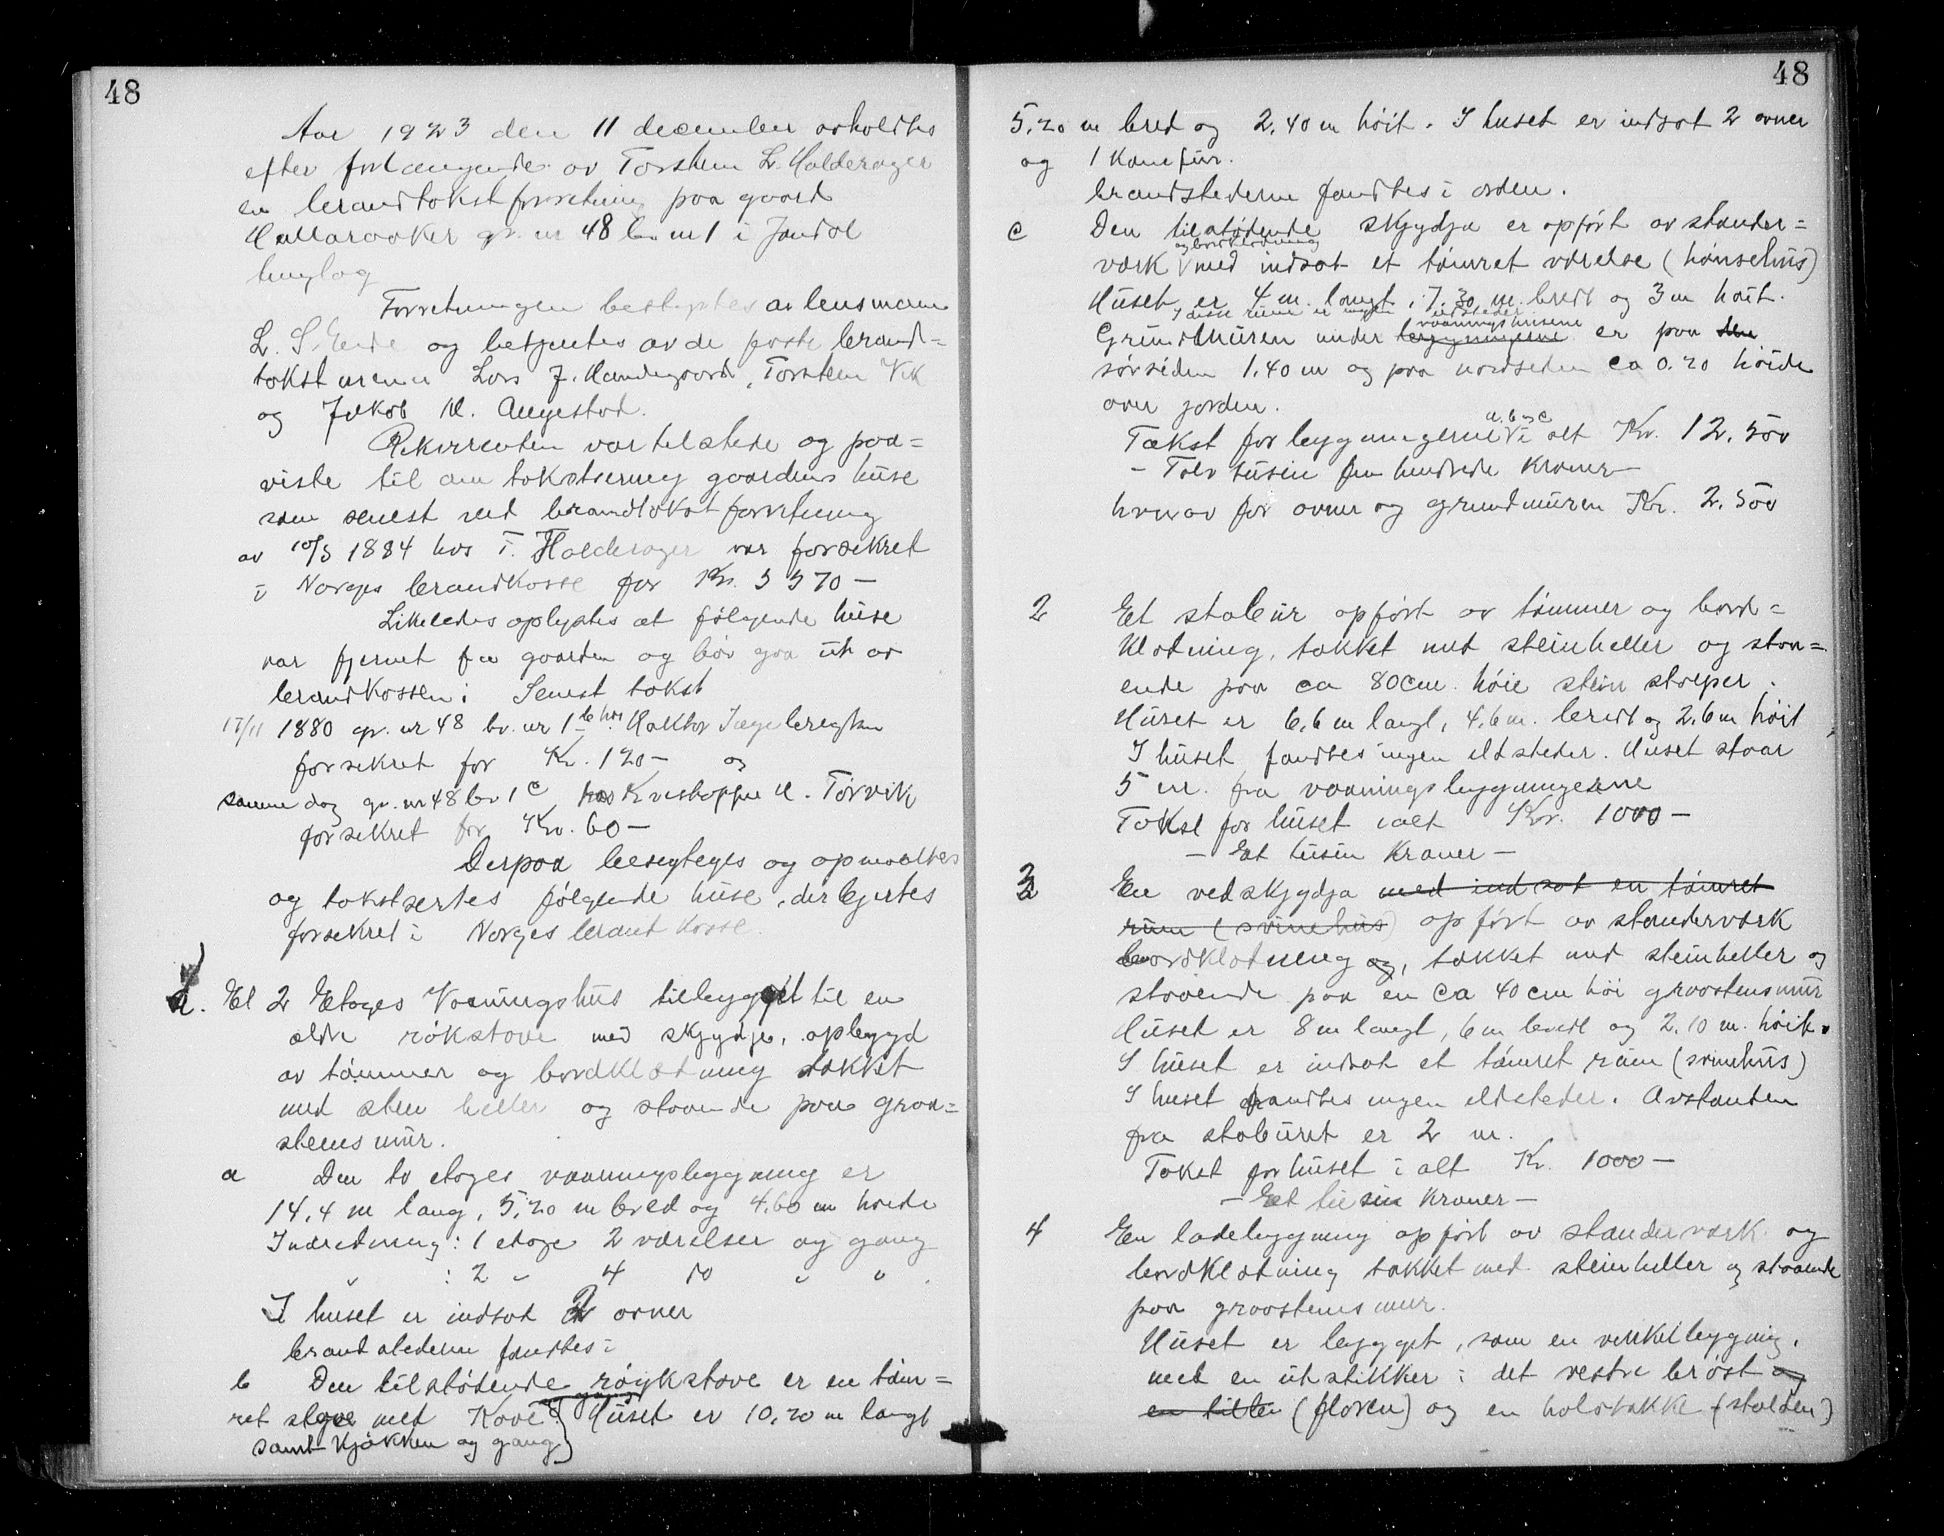 48
Aar 1923 den 11 december avholdtes
efter forlangende av Torstein L. Halderager
en brandtakstforretning paa gaard
Hallaraaker gr. nr 48 br. nr 1 i Jondal
tinglag
Forretningen bestyrtes av lensmann
L. S. Eide og betjentes av de faste brand=
takstmenn Lars J. Handegaard, Torstein Vik
og Jakob N. Augestad.
Rekvirenten var tilstede og paa=
viste til om taksering gaardens huse
som senest ved brandtakstforretning
av 10/3 1884 hos T. Halderager var forsekret
i Norges brandkasse for Kr. 3570 —
Likeledes oplystes at følgende huse
var fjernet fra gaarden og bør gaa ut av
brandkassen: Senest takst
17/11 1880 gr. nr 48 br. nr 1 b hos Haktor
forsekret for Kr. 120 — og
samme dag gr. nr 48 br 1 c hos H. Tørvik
forsekret for Kr. 60 —
Derpaa besigteges og opmaaltes
og takstsertes følgende huse, der bejertes
forsekret i Norges brankasse.
1. Et 2 Etages Vaaningshus tilbygget til en
eldre røkstove med skjydje, opbygd
av tømmer og bordklædning takket
med sten heller og staaende paa graa=
stens mur.
a Den to etages vaaningsbygning er
14,4 m lang, 5,20 m bred og 4.60 m høide
Indretning: 1 etage 2 værelser og gang
" : 2 " 4 do " " .
I huset er indsat 2 ovner
brandstederne fandtes i
b Den tilstødende røykstove er en tøm=
ret stove med Kove og gang Huset er 10,20 m langt
samt kjøkken og gang
48
5,20 m bred og 2,40 m høit. I huset er indsat 2 ovner
og 1 Komfur.
brandstederne fandtes i orden.
c Den tilstødende skjydja er opført av stander=
og bordklædning
værk med indsat et tømret værelse (hønsehus)
Huset er 4 m. langt, 7.30 m. bredt og 3 m høit.
I disse rum er ingen ildsteder
vaaningshusene
Grundmuren under bygningerne er paa den
sørsiden 1.40 m og paa nordsiden ca 0.20 høide
over jorden.
a, b og c
Takst for bygningerne i alt Kr. 12,500
— Tolv tusin fem hundrede kroner —
hvorav for ovner og grundmuren Kr. 2,500
2 Et stabur opført av tømmer og bord=
klædning, takket med steinheller og staa=
ende paa ca 80 cm. høie stein stolper.
Huset er 6,6 m langt, 4,6 m. bredt og 2,6 m høit
I huset fandtes ingen ildsteder. Huset staar
5 m. fra vaaningsbygningerne
Takst for huset ialt Kr. 1000 —
— Et tusin kroner —
3 En vedskjydja med indsat en tømret
rum (svinehus) opført av standerværk
bordklædning og, takket med steinheller og
staaende paa en ca 40 cm høi graastensmur
Huset er 8 m langt, 6 m bredt og 2,10 m. høit.
I huset er indsat et tømret rum (svinehus)
I huset fandtes ingen ildsteder. Avstanden
fra staburet er 2 m.
Takst for huset i alt Kr. 1000 —
— Et tusin kroner —
4 En ladebygning opført av standerværk og
bordklædning takket med steinheller og staaende
paa graastens mur.
Huset er bygget, som en vinkelbygning,
med en utstikker i det vestre brøst og
en litten (floren) og en halvtakke (stalden)